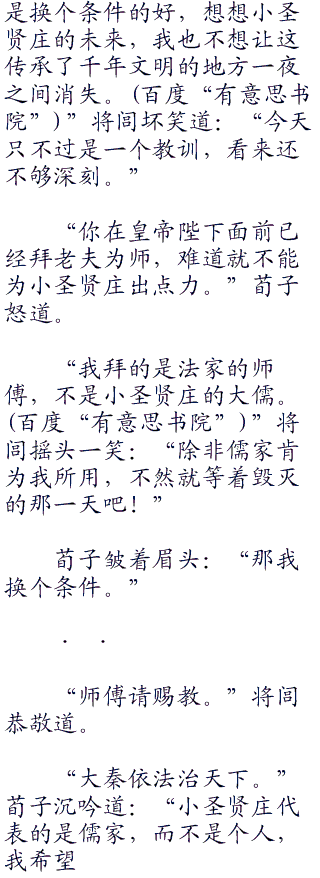 是换个条件的好，想想小圣
贤庄的未来，我也不想让这
传承了千年文明的地方一夜
之间消失。(百度“有意思书
院”)”将闾坏笑道：“今天
只不过是一个教训，看来还
不够深刻。”
“你在皇帝陛下面前已
经拜老夫为师，难道就不能
为小圣贤庄出点力。”荀子
怒道。
“我拜的是法家的师
傅，不是小圣贤庄的大儒。
(百度“有意思书院”)”将
闾摇头一笑：“除非儒家肯
为我所用，不然就等着毁灭
的那一天吧！”
荀子皱着眉头：“那我
换个条件。”
． ．
“师傅请赐教。”将闾
恭敬道。
“大秦依法治天下。”
荀子沉吟道：“小圣贤庄代
表的是儒家，而不是个人，
我希望